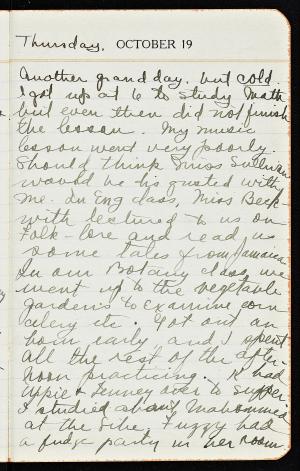 Thursday, OCTOBER 19
Another grand day. but cold.
I got up at 6 to study Math
but even then did not finish
the lesson. My music
lesson went very poorly.
Should think Miss Sullivan
would be disgusted with
me. In Eng class, Miss Beck-
with lectured to us on
Folk-lore and read us
some tales from Jamaica
In our Botany class we
went up to the vegetable
gardens to examine corn
celery etc. Got out an
hour early and I spent
all the rest of the after-
noon practicing. K had
Appie & Tenney over to supper
I studied about Mahommed
at the Libe. Fuzzy had
a fudge party in her room